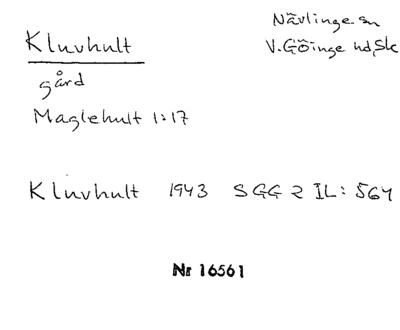 Kluvhult
Nävlinge sn
V. Göinge hd, Sk
gård
Maglehult 1:17
Kluvhult 1943 SGG 2 IL: 564
Nr 16561